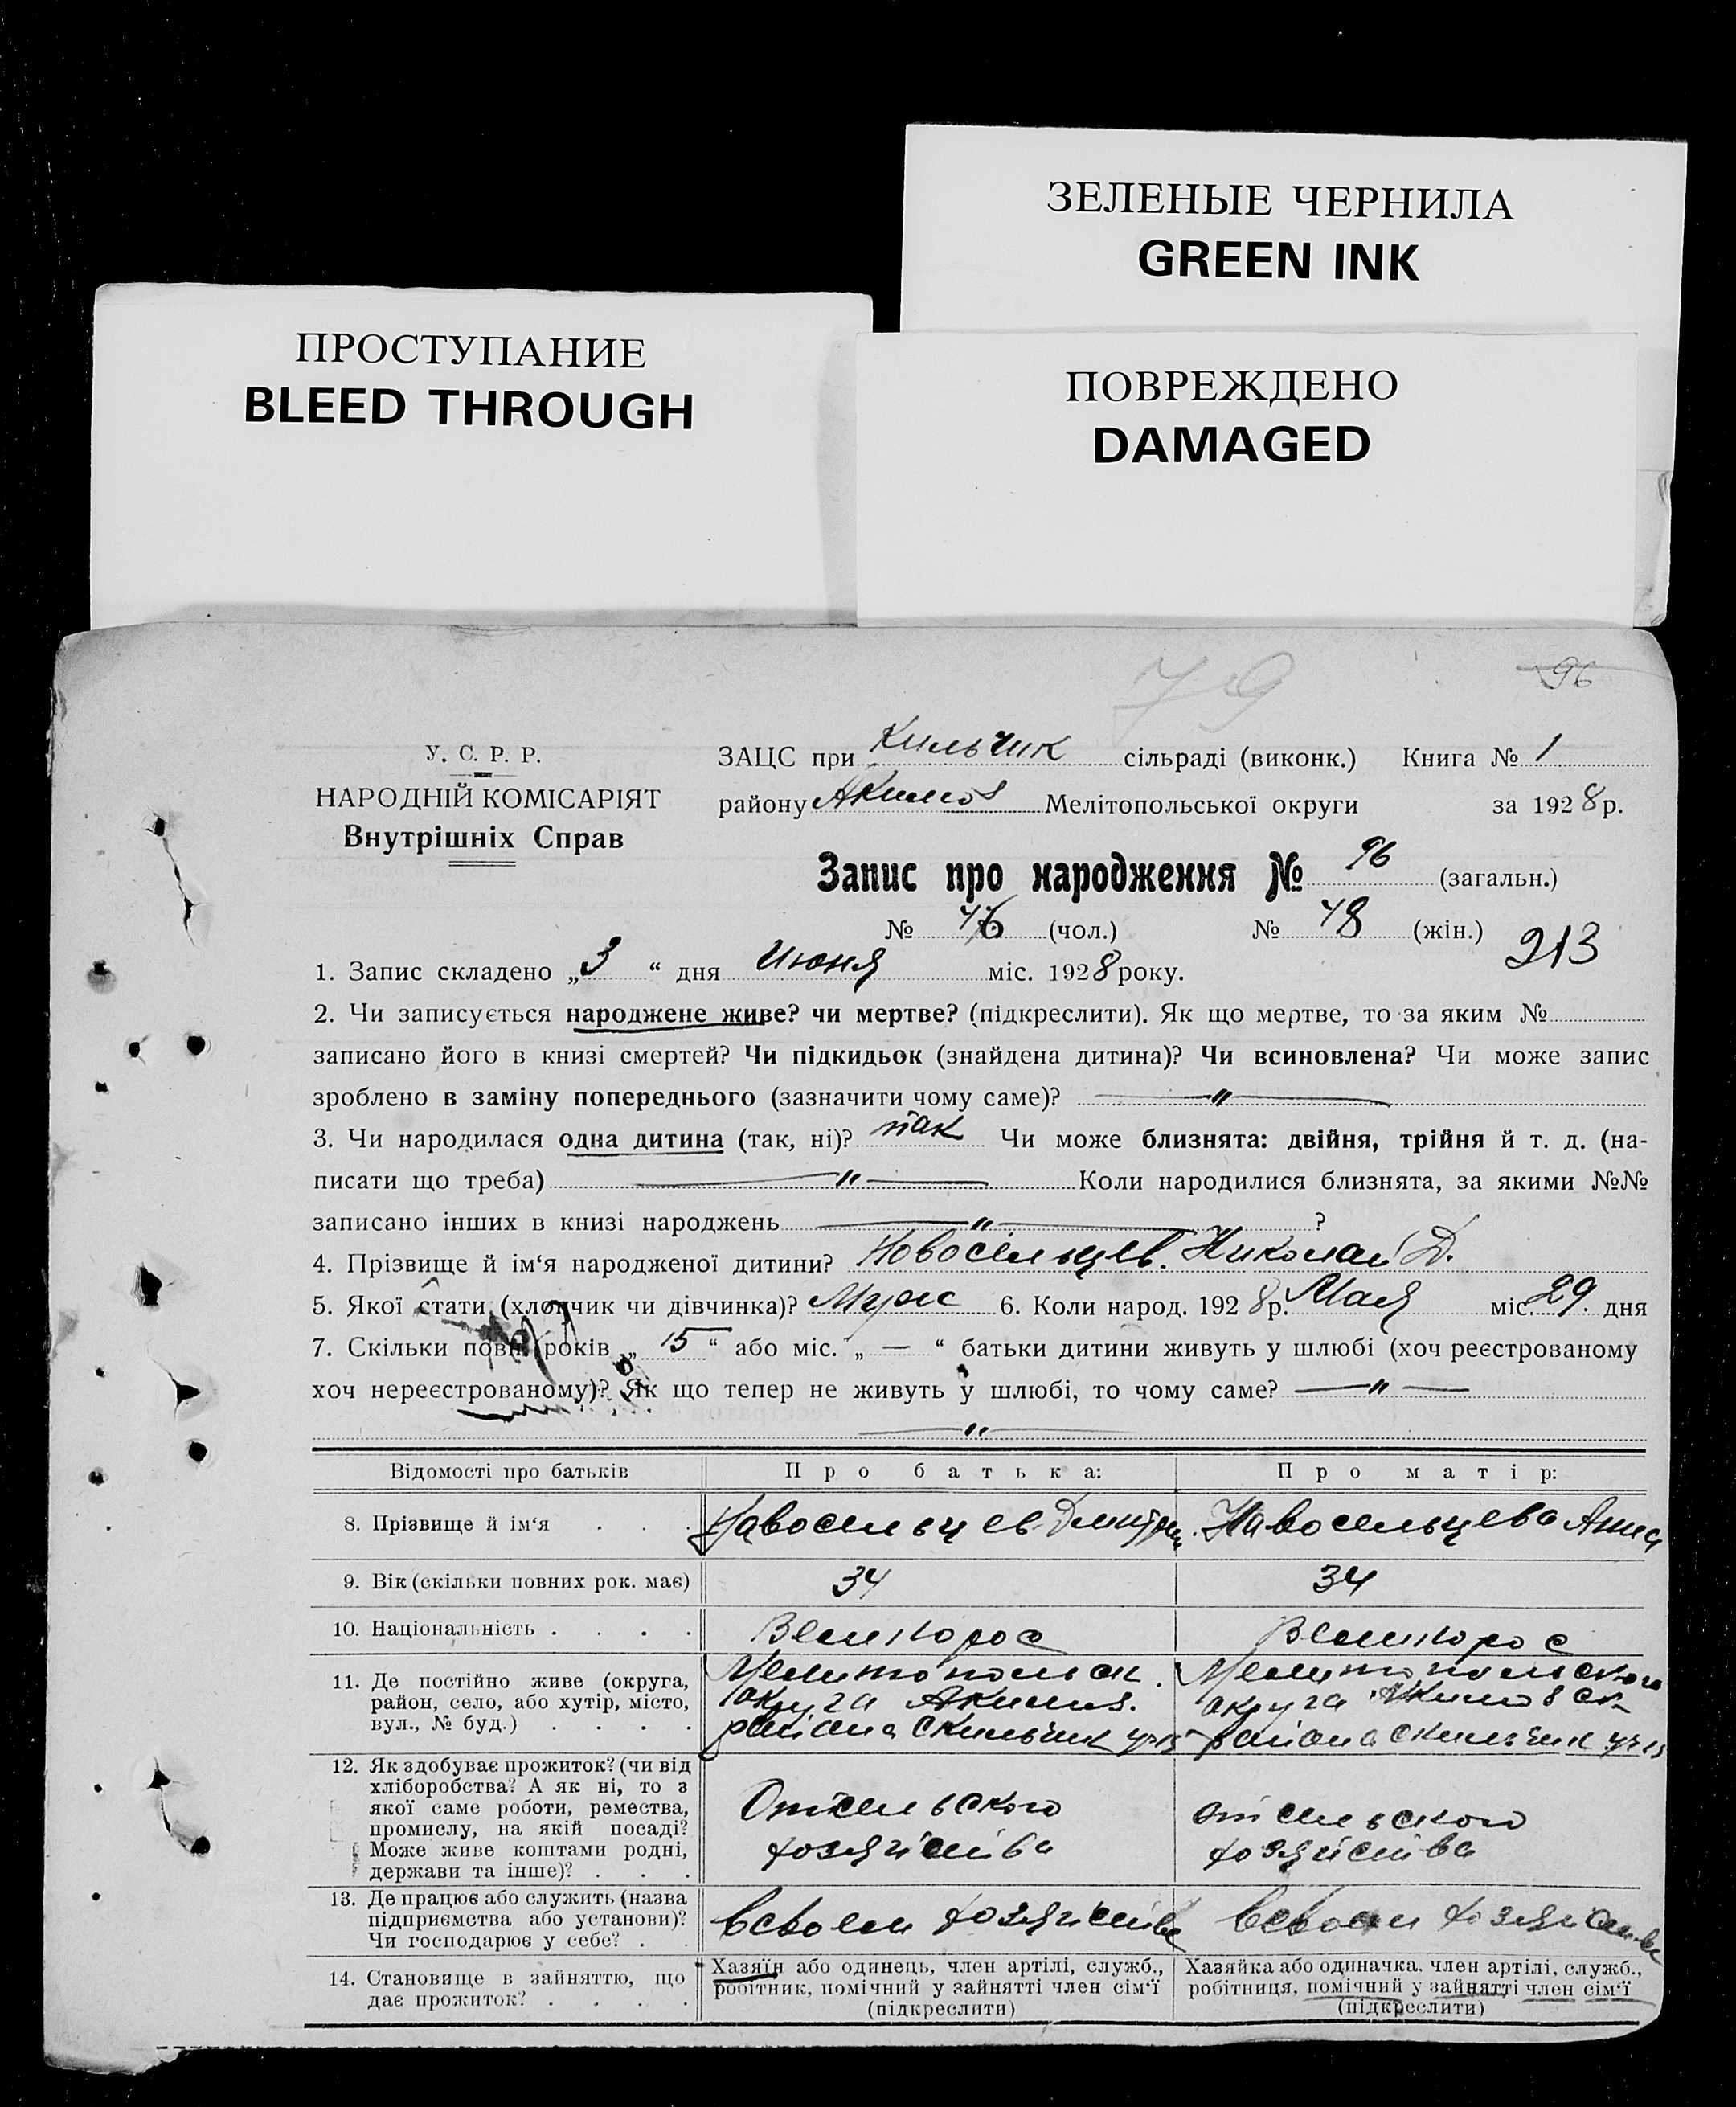 ЗЕЛЕНЫЕ ЧЕРНИЛА
GREEN INK
ПРОСТУПАНИЕ
BLEED THROUGH
ПОВРЕЖДЕНО
DAMAGED
79
96
У. С. Р. Р.
НАРОДНІЙ КОМІСАРІЯТ
Внутрішніх Справ
ЗАЦС при Кильчик сільраді (виконк.) Книга № 1
району Акимов Мелітопольської округи за 1928 р.
Запис про народження № 96 (загальн.)
№ (чол.) № 48 (жін.)
213
1. Запис складено „3“ дня Июня міс. 1928 року.
2. Чи записується народжене живе? чи мертве? (підкреслити). Як що мертве, то за яким №
записано його в книзі смертей? Чи підкидьок (знайдена дитина)? Чи всиновлена? Чи може запис
зроблено в заміну попереднього (зазначити чому саме)? — „ —
3. Чи народилася одна дитина (так, ні)? так Чи може близнята: двійня, трійня й т. д. (на-
писати що треба) — „ — Коли народилися близнята, за якими №№
записано інших в книзі народжень — „ — ?
4. Прізвище й ім‘я народженої дитини? Новосельцев. Николай Д.
5. Якої стати (хлопчик чи дівчинка)? Муж 6. Коли народ. 1928 р. Мая міс. 29. дня
7. Скільки повн. років „15“ або міс. „ — “ батьки дитини живуть у шлюбі (хоч реєстрованому
хоч нереєстрованому)? Як що тепер не живуть у шлюбі, то чому саме? — „ —
— „ —
Відомості про батьків Про батька: Про матір:
8. Прізвище й ім‘я . . . Навосельцев Дмитрий. Навосельцева Анна
9. Вік (скільки повних рок. має) 34 34
10. Національність . . . . Великорос Великорос
11. Де постійно живе (округа,
район, село, або хутір, місто,
вул., № буд.) . . . .
Мелитопольск.
округа Акимов.
района с Кильчик
Мелитопольского
округа Акимовск
района с Кильчик
12. Як здобуває прожиток? (чи від
хліборобства? А як ні, то з
якої саме роботи, ремества,
промислу, на якій посаді?
Може живе коштами родні,
держави та інше)? . . .
От сельского
хозяйства
от сельского
хозяйства
13. Де працює або служить (назва
підприємства або установи)?
Чи господарює у себе? . .
в своем хозяйстве
в своем хозяйстве
14. Становище в зайняттю, що
дає прожиток? . . . .
Хазяїн або одинець, член артілі, служб.,
робітник, помічний у зайнятті член сім‘ї
(підкреслити)
Хазяйка або одиначка, член артілі, служб.,
робітниця, помічний у зайнятті член сім‘ї
(підкреслити)